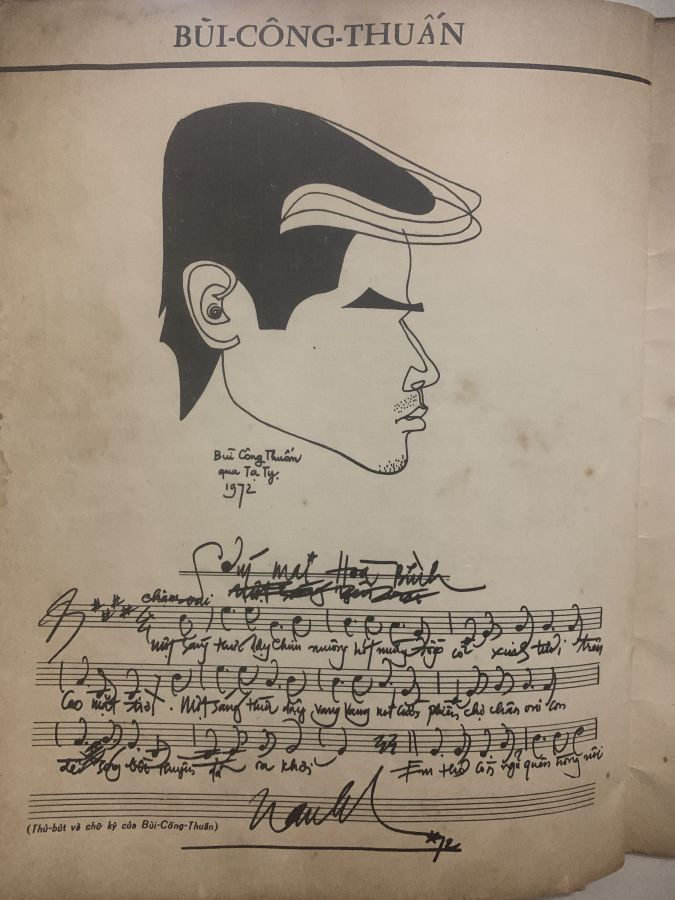 BÙI-CÔNG-THUẤN
Bùi Công Thuấn
qua Tạ Tỵ.
1972
Sớm mai Hoà Bình
chậm vui
Một sáng thức dậy chim muông hót mừng cỏ xuân tươi, trên
cao mặt trời. Một sáng thức dậy vang vang nơi cuối phiên chợ chân
sóng thuyền đã ra khơi Em thơ còn ngủ quên trong nôi
(Thủ-bút và chữ ký của Bùi-Công-Thuấn)
72